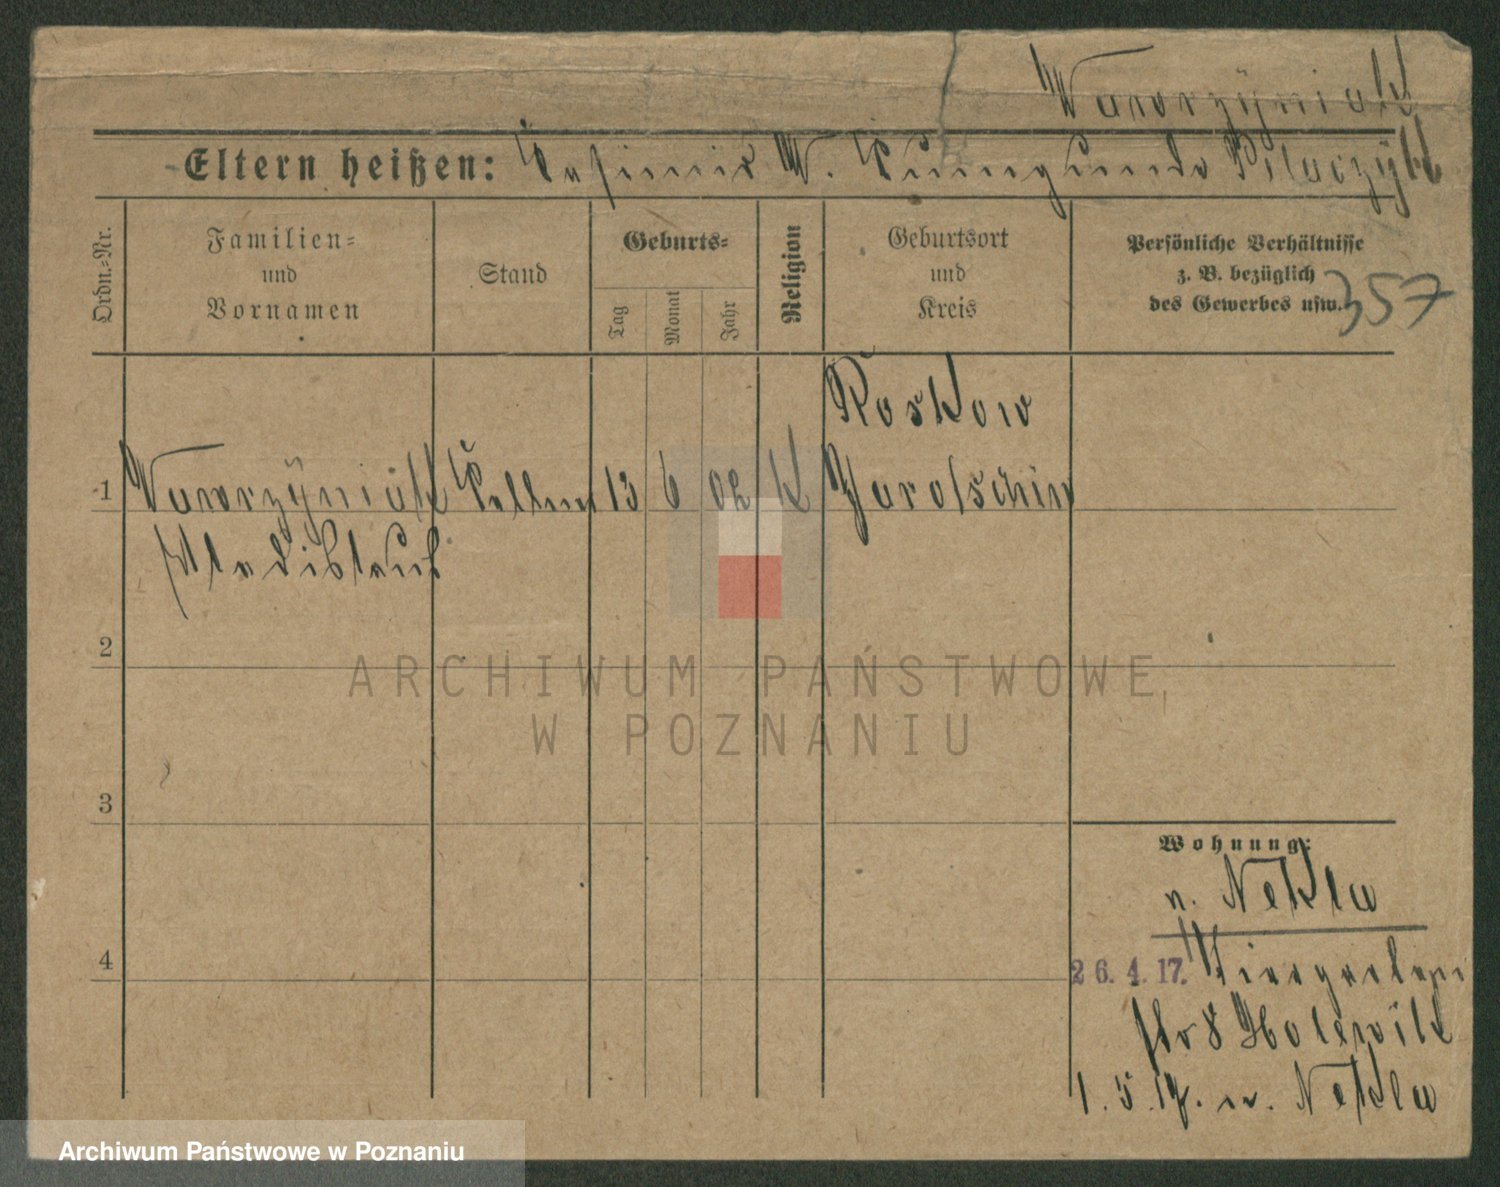 Wawrzÿniak
Eltern heißen: Kasimir W. Kunigunde Pilarzÿk
Ordn.-Nr.
Familien-
und
Vornamen
Stand
Geburts-
Tag
Monat
Jahr
Religion
Geburtsort
und
Kreis
Persönliche Verhältnisse
z. B. bezüglich
des Gewerbes usw.
357
1 Wawrzÿniak Kelln 13 6 02 K Roskow
Jarotschin
Wladislaus
2
3
4
Wohnung:
n. Nekla
26. 4. 17.
str 8
1. 5. 17. n. Nekla
ARCHIWUM PAŃSTWOWE
W POZNANIU
Archiwum Państwowe w Poznaniu